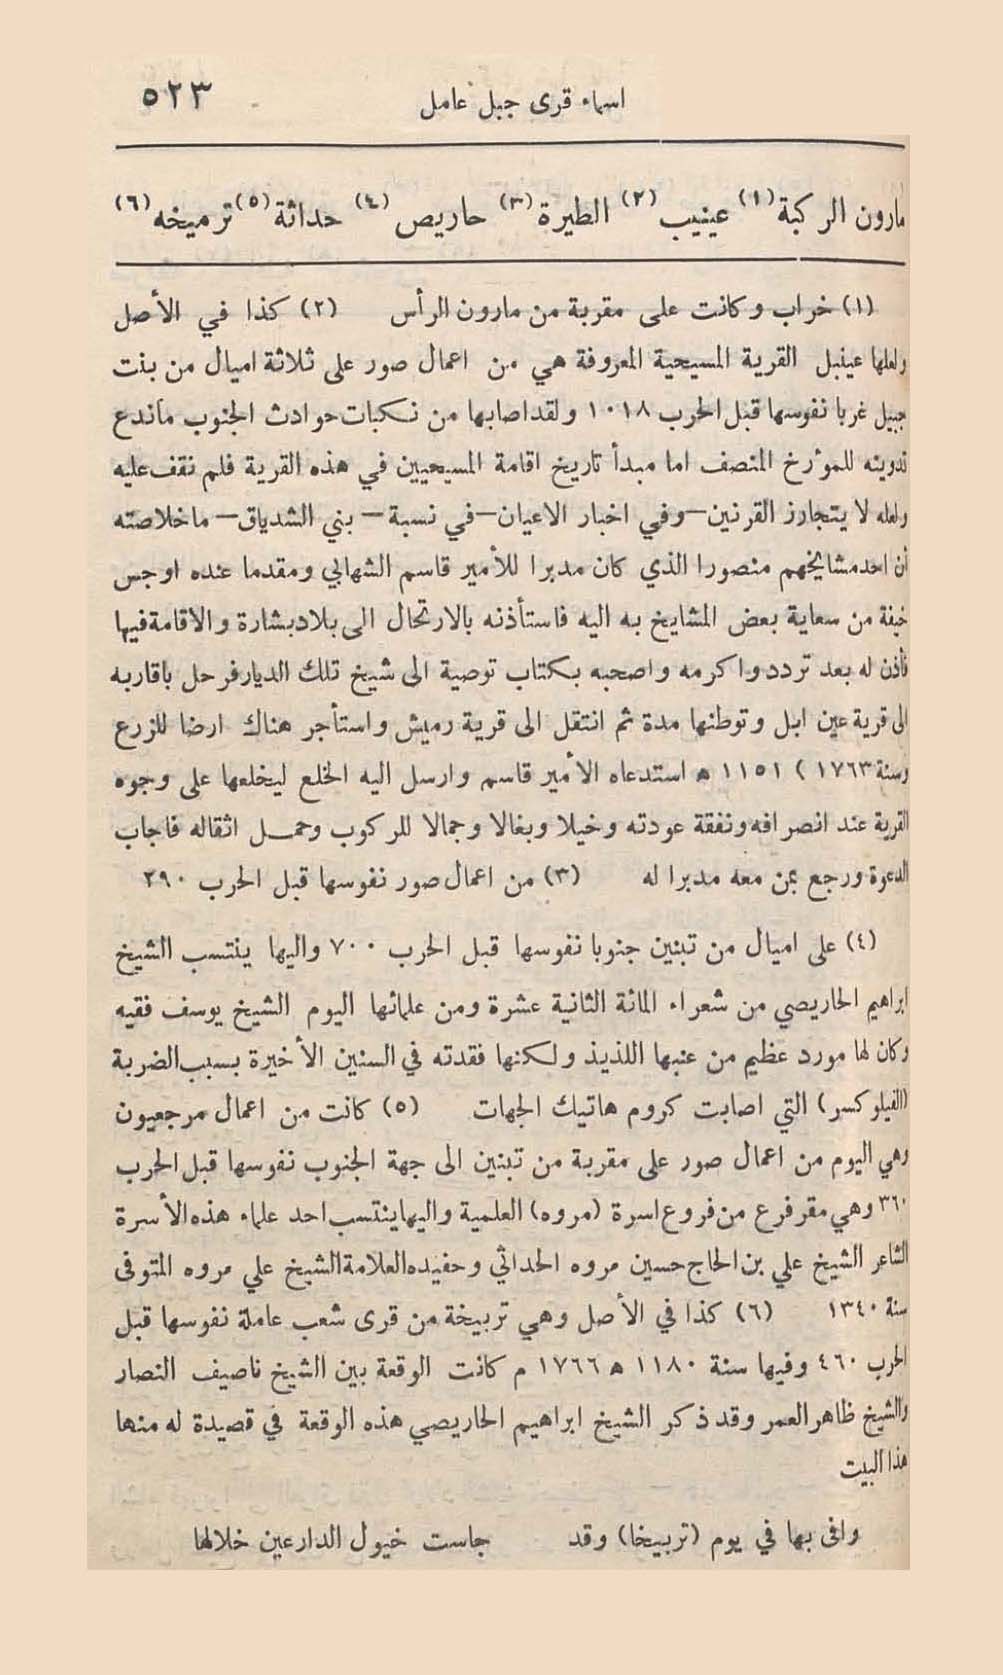 اسماء قرى جبل عامل ٥٢٣
مارون الركبة (١) عينيب (٢) الطيرة (٣) حاريص (٤) حداثة (٥) ترميخه (٦)
(١) خراب وكانت على مقربة من مارون الرأس (٢) كذا في الأصل
ولعلها عينبل القرية المسيحية المعروفة هي من اعمال صور على ثلاثة اميال من بنت
جبيل غربا نفوسها قبل الحرب ١٠١٨ ولقد اصابها من نكبات حوادث الجنوب ماندع
تدوينه للمؤرخ المنصف اما مبدأ تاريخ اقامة المسيحيين في هذه القرية فلم نقف عليه
ولعله لا يتجارز القرنين – وفي اخبار الاعيان – في نسبة – بني الشدياق – ما خلاصته
أن احد مشايخهم منصورا الذي كان مدبرا للأمير قاسم الشهابي ومقدما عنده اوجس
خيفة من سعاية بعض المشايخ به اليه فاستأذنه بالارتحال الى بلاد بشارة والاقامة فيها
فأذن له بعد تردد واكرمه واصحبه بكتاب توصية الى شيخ تلك الديار فرحل باقاربه
الى قرية عين ابل وتوطنها مدة ثم انتقل الى قرية رميش واستأجر هناك ارضا للزرع
وسنة ١٧٦٣ ) ١١٥١ ه استدعاه الأمير قاسم وارسل اليه الخلع ليخلعها على وجوه
القرية عند انصرافه ونفقة عودته وخيلا وبغالا وجمالا للركوب وحمل اثقاله فاجاب
الدعوة ورجع بمن معه مدبرا له (٣) من اعمال صور نفوسها قبل الحرب ٢٩٠
(٤) على اميال من تبنين جنوبا نفوسها قبل الحرب ٧٠٠ واليها ينتسب الشيخ
ابراهيم الحاريصي من شعراء المائة الثانية عشرة ومن علمائها اليوم الشيخ يوسف فقيه
وكان لها مورد عظيم من عنبها اللذيذ ولكنها فقدته في السنين الأخيرة بسبب الضربة
(الفيلوكسر) التي اصابت كروم هاتيك الجهات (٥) كانت من اعمال مرجعيون
وهي اليوم من اعمال صور على مقربة من تبنين الى جهة الجنوب نفوسها قبل الحرب
٣٦٠ وهي مقر فرع من فروع اسرة (مروه) العلمية واليها ينتسب احد علماء هذه الأسرة
الشاعر الشيخ علي بن الحاج حسين مروه الحداثي وحفيده العلامة الشيخ علي مروه المتوفى
سنة ١٣٤٠ (٦) كذا في الأصل وهي تربيخة من قرى شعب عاملة نفوسها قبل
الحرب ٤٦٠ وفيها سنة ١١٨٠ ه ١٧٦٦ م كانت الوقعة بين الشيخ ناصيف النصار
والشيخ ظاهر العمر وقد ذكر الشيخ ابراهيم الحاريصي هذه الوقعة في قصيدة له منها
هذا البيت
وافى بها في يوم (تربيخا) وقد جاست خيول الدارعين خلالها